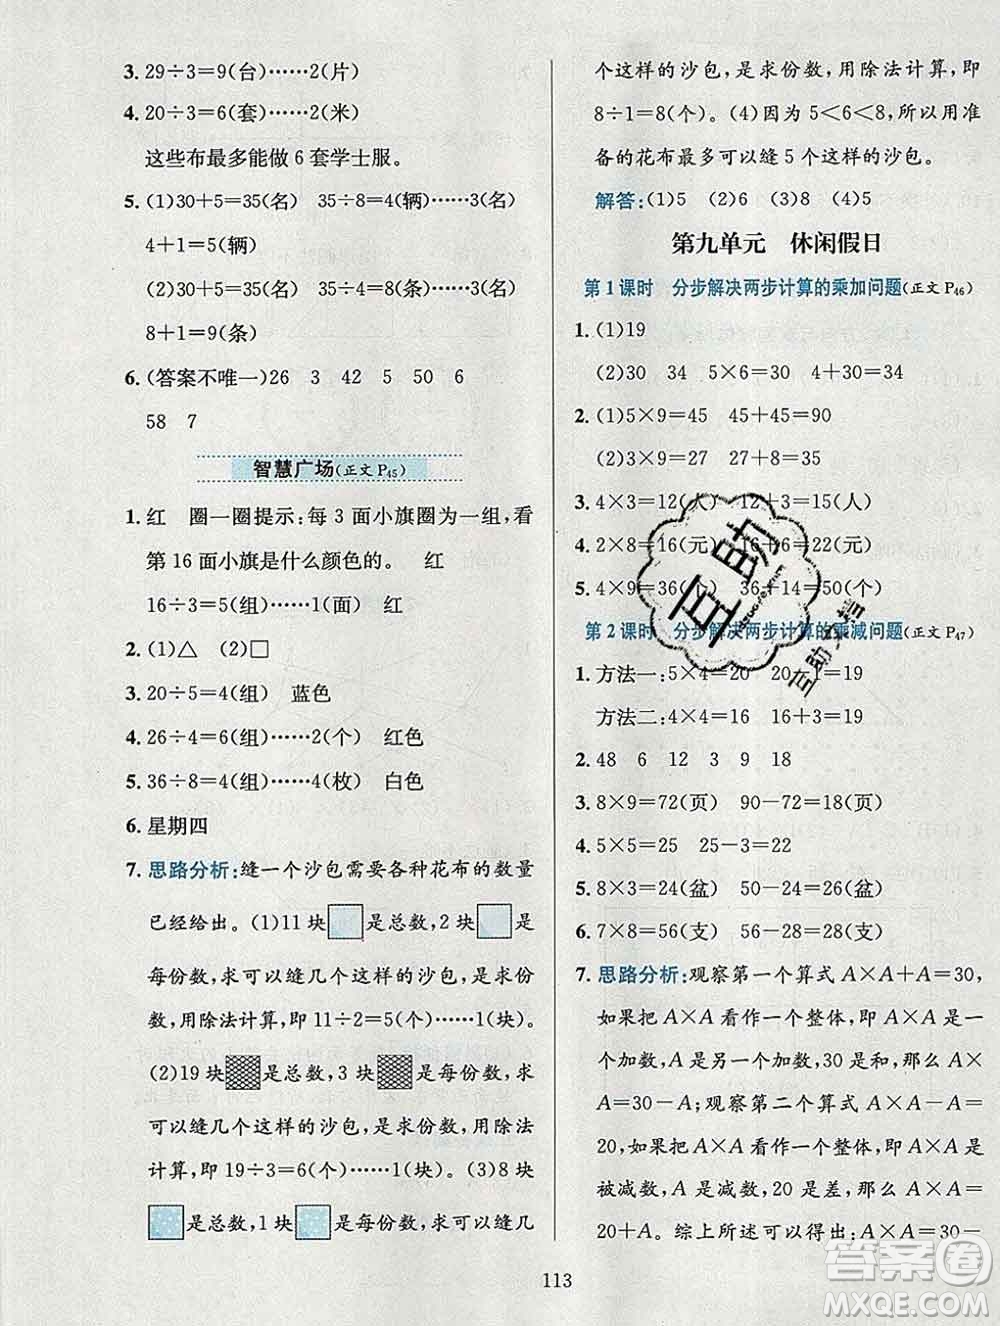 3. 29÷3=9(台)……2(片)
4. 20÷3=6(套)……2(米)
这些布最多能做 6 套学士服。
5. (1)30+5=35(名) 35÷8=4(辆)……3(名)
4+1=5(辆)
(2)30+5=35(名) 35÷4=8(条)……3(名)
8+1=9(条)
6. (答案不唯一)26 3 42 5 50 6
58 7
智慧广场(正文 P45)
1. 红 圈一圈提示:每 3 面小旗圈为一组,看
第 16 面小旗是什么颜色的。 红
16÷3=5(组)……1(面) 红
2. (1)△ (2)□
3. 20÷5=4(组) 蓝色
4. 26÷4=6(组)……2(个) 红色
5. 36÷8=4(组)……4(枚) 白色
6. 星期四
7. 思路分析:缝一个沙包需要各种花布的数量
已经给出。(1)11 块是总数,2 块是
每份数,求可以缝几个这样的沙包,是求份
数,用除法计算,即 11÷2=5(个)……1(块)。
(2)19 块是总数,3 块是每份数,求
可以缝几个这样的沙包,是求份数,用除法
计算,即 19÷3=6(个)……1(块)。(3)8 块
是总数,1 块是每份数,求可以缝几
个这样的沙包,是求份数,用除法计算,即
8÷1=8(个)。(4)因为 5<6<8,所以用准
备的花布最多可以缝 5 个这样的沙包。
解答:(1)5 (2)6 (3)8 (4)5
第九单元 休闲假日
第 1 课时 分步解决两步计算的乘加问题(正文 P46)
1. (1)19
(2)30 34 5×6=30 30+4=34
2. (1)5×9=45 45+45=90
(2)3×9=27 27+9=36
3. 4×3=12(人) 12+3=15(人)
4. 2×8=16(元) 16+6=22(元)
5. 4×9=36(个) 36+14=50(个)
第 2 课时 分步解决两步计算的乘减问题(正文 P47)
1. 方法一:5×4=20 20-1=19
方法二:4×4=16 16+3=19
2. 48 6 12 3 9 18
3. 8×9=72(页) 90-72=18(页)
4. 5×5=25 25-22=3
5. 8×3=24(盆) 50-24=26(盆)
6. 7×8=56(支) 56-28=28(支)
7. 思路分析:观察第一个算式 A×A+A=30,
如果把 A×A 看作一个整体,即 A×A 是一
个加数,A 是另一个加数,30 是和,那么 A×
A=30-A;观察第二个算式 A×A-A=
20,如果把 A×A 看作一个整体,即 A×A 是
被减数,A 是减数,20 是差,那么 A×A=
20+A。综上所述可以得出:A×A=30-
113
互助
互助文档
答案圈
MXQE.COM